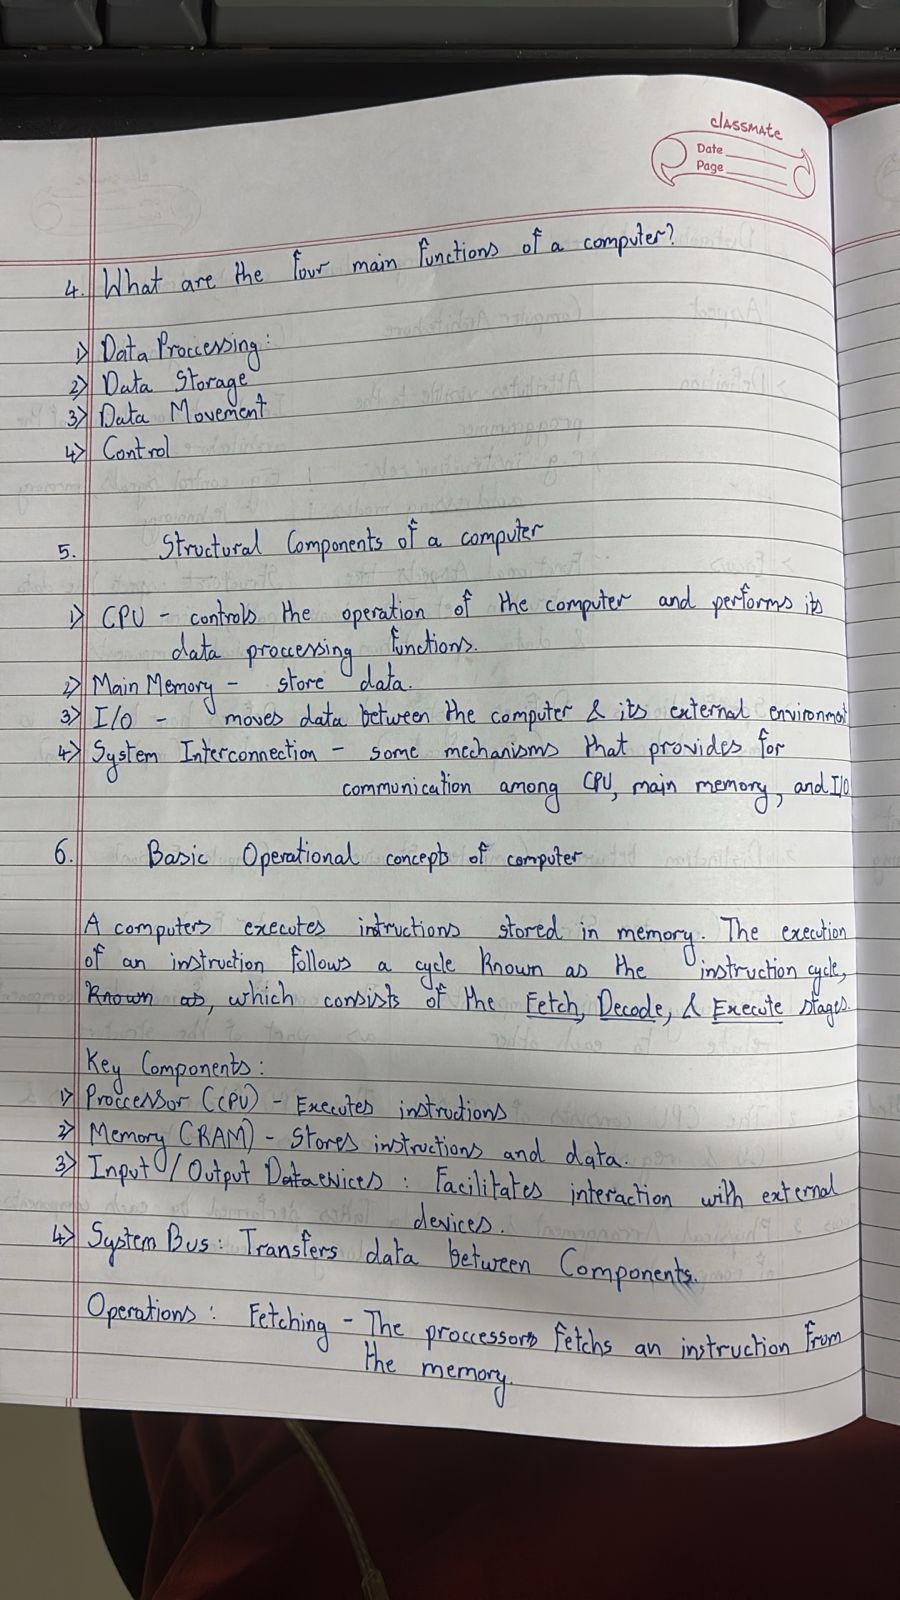 classmate
Date
Page
4. What are the four main functions of a computer?
1) Data Proccessing:
2) Data Storage
3) Data Movement
4) Control
5. Structural Components of a computer
1) CPU - controls the operation of the computer and performs its
data proccessing functions.
2) Main Memory - store data.
3) I/O - moves data between the computer & its external environment
4) System Interconnection - some mechanisms that provides for
communication among CPU, main memory, and I/O
6. Basic Operational concepts of computer
A computers executes intructions stored in memory. The execution
of an instruction follows a cycle known as the instruction cycle,
known as, which consists of the Fetch, Decode, & Execute stages.
Key Components:
1) Proccessor (CPU) - Executes instructions
2) Memory (RAM) - Stores instructions and data.
3) Input / Output : Facilitates interaction with external
devices.
4) System Bus: Transfers data between Components.
Operations: Fetching - The proccessor fetchs an instruction from
the memory.